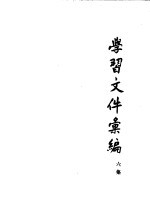 學習文件彙編
六集